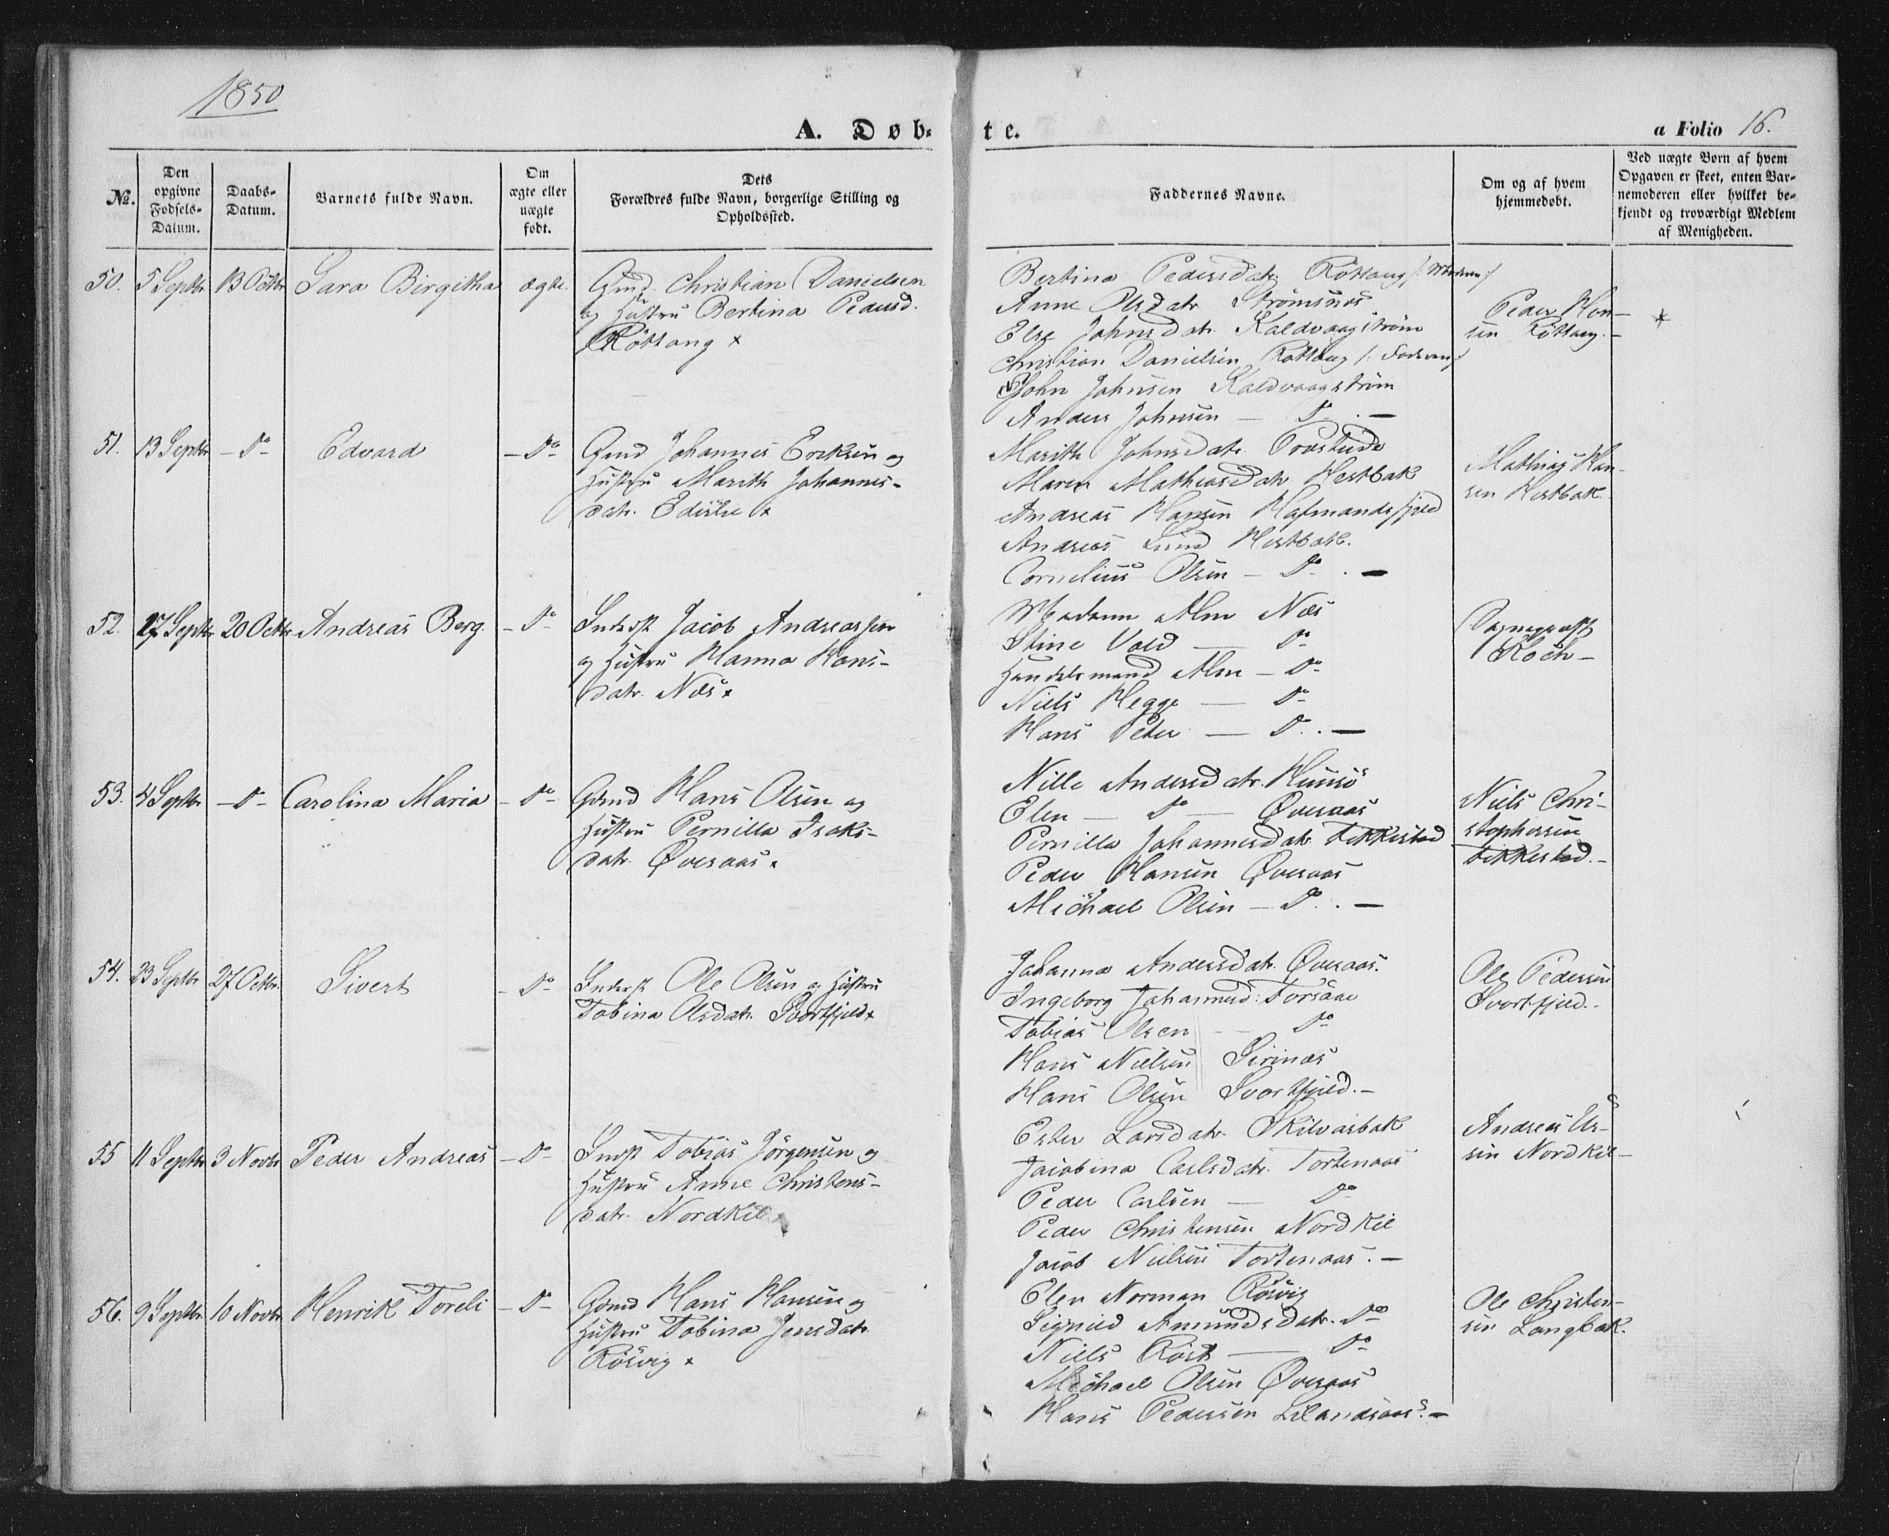 1850
A. Døb-
te.
a Folio 16.
No.
Den opgivne Fødsels-Datum.
Daabs-Datum.
Barnets fulde Navn.
Om ægte eller uægte født.
Dets
Forældres fulde Navn, borgerlige Stilling og Opholdssted.
Faddernes Navne.
Om og af hvem hjemmedøbt.
Ved uægte Børn af hvem Opgaven er skeet, enten Barnemoderen eller hvilket bekjendt og troværdigt Medlem af Menigheden.
50. 5 Septbr 13 Octbr Sara Birgitha ægte.
Gmd. Christian Danielsen
og Hustru Bertina Pedersd.
Røtsang x
Bertina Pedersdatr Røtsang /: Moderen :/
Anne Olsdatr Strømsnæs
Else Johnsdatr. Kaldvaagstrøm
Christian Danielsen Røtsang /: Faderen :/
John Johnsen Kaldvaagstrøm
Anders Johnsen — Do. —
Peder Han-
sen Røtsang. —
51. 13 Septbr — Do Edvard — Do
Gmd Johannes Eriksen og
Hustru Marith Johannes-
datr.
Marith Johnsdatr.
Maren Mathiasdatr Hestbak
Andreas Hansen Hafmandsfjeld
Andreas Lund Hestbak.
Cornelius Olsen — Do. —
Mathias Han-
sen Hestbak
52. 27 Septbr 20 Octbr Andreas Berg. — Do
Inderst Jacob Andreassen
og Hustru Hanna Hans-
datr. Næs x
Madam Alm Næs
Stine Vold — Do
Handelsmand Alm — Do
Niels Hegge — Do
Hans Peter — Do. —
Sognepræst
Koch —
53. 4 Septbr — Do — Carolina Maria — Do
Gdmd Hans Olsen og
Hustru Pernilla Isaks-
datr. Øveraas x
Nille Andersdatr.
Elen — Do — Øveraas
Pernilla Johannesdatr. Fikkestad
Peder Hansen Øveraas
Michael Olsen — Do. —
Niels Chri-
stophersen
Fikkestad. —
54. 23 Septbr 27 Octbr. Sivert — Do
Inderst Ole Olsen og Hustru
Tobina Olsdatr. Svortfjeld x
Johanna Andersdatr. Øveraas.
Ingeborg Johannesd:
Tobias Olsen — Do
Hans Nielsen
Hans Olsen Svortfjeld. —
Ole Pedersen
Svortfjeld.
55 11 Septbr 3 Novbr Peder Andreas — Do
Inderst Tobias Jørgensen og
Hustru Anne Christens-
datr. Nordkil x
Ester Larsdatr. Skilvasbak
Jacobina Carlsdatr. Tortenaas
Peder Carlsen — Do
Peder Christensen Nordkil
Jacob Nielsen Tortenaas. —
Andreas
sen Nordkil —
56. 9 Septbr 10 Novbr Henrik Toreli — Do
Gdmd Hans Hansen og
Hustru Tobina Jensdatr
Røsvig x
Elen Norman Røsvig
Signild Amundsdatr. Do
Niels Røst — Do
Michael Olsen Øveraas
Hans Pedersen Lilandsaas. —
Ole Christen-
sen Langbak.